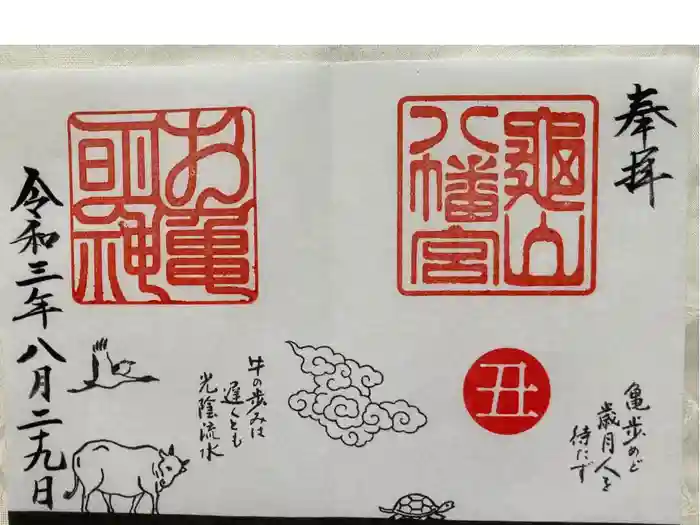 奉拝
亀山
八幡宮
丑
亀歩めど
歳月人を
待たず
牛の歩みは
遅くとも
光陰流水
お亀
明神
令和三年八月二十九日